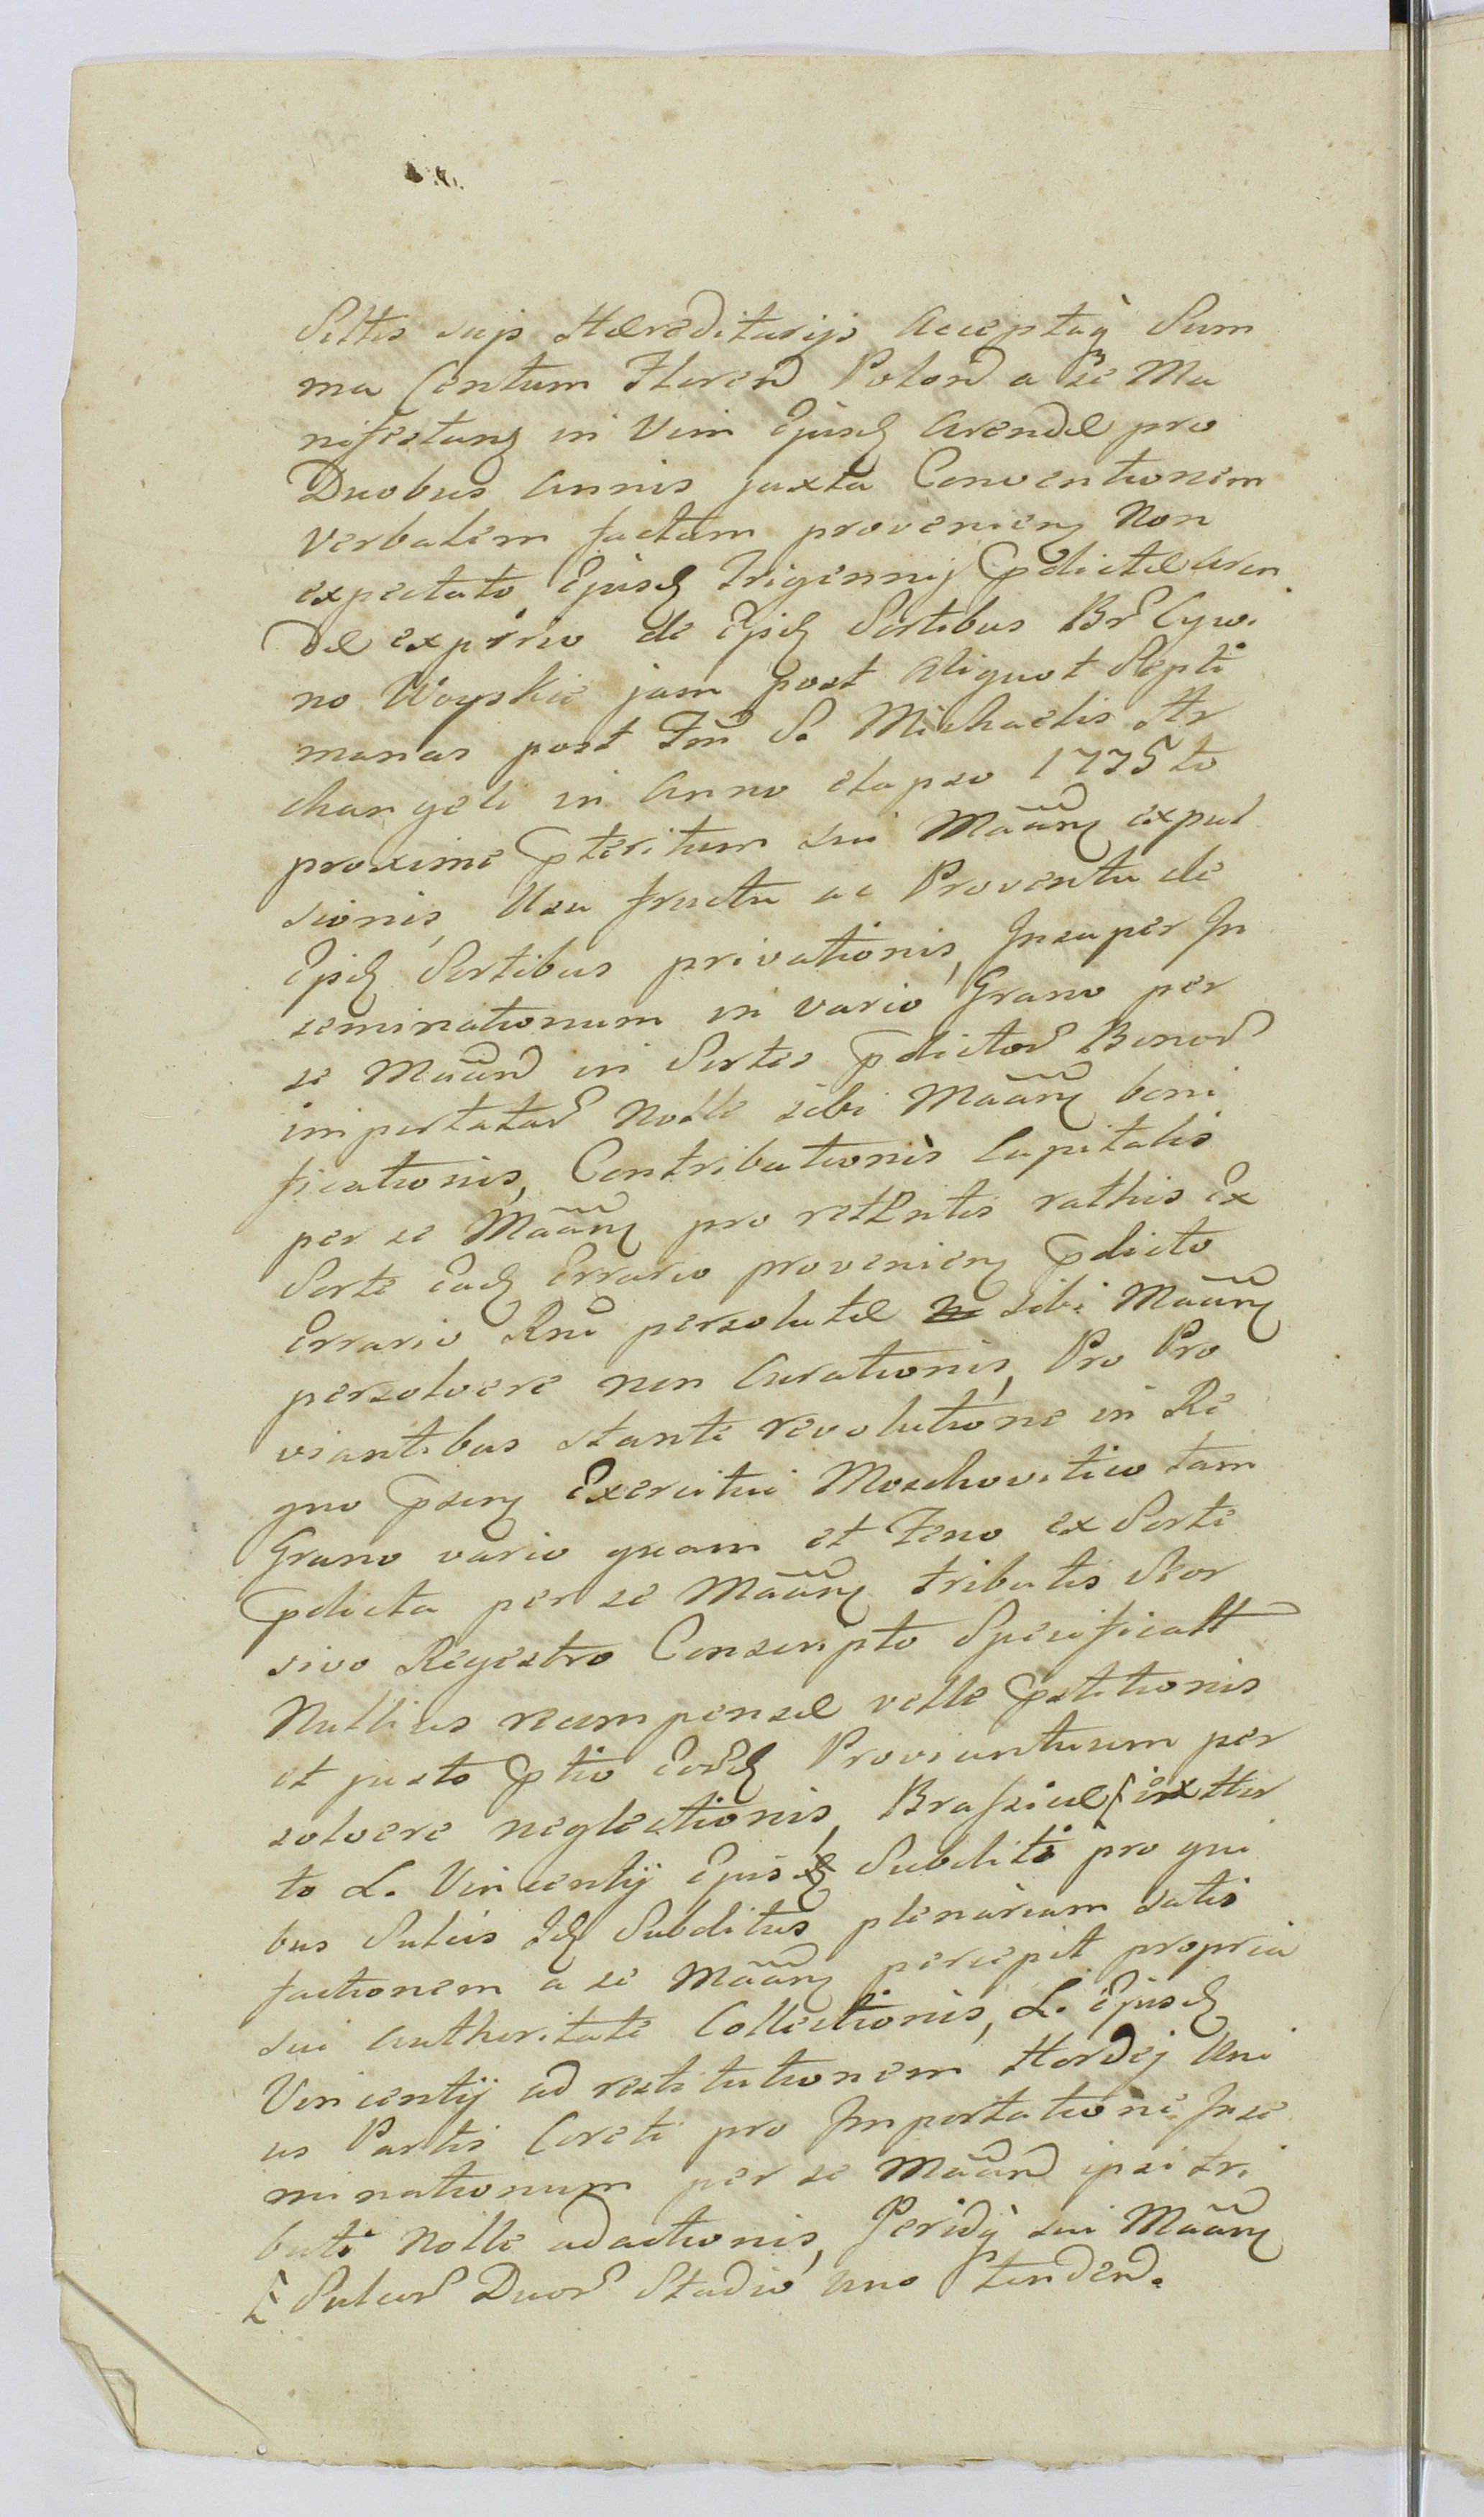 suis Hæreditarijs Acceptaq Sum
ma Centum Floren Polon a se Ma
nifestanq in Vim Ejusq Arendæ pro
Duobus Annis juxta Conventionem
verbalem factam provenienq Non
expectato Ejusq Trigennij pdictæ Aren
dæ expirio de Ejsq Sortibus Br̃ Cywi
no Woyskie jam post Aliquot Septi
manas post Fm̃ S. Michaelis Ar
changeli in Anno elapso 1775to
proxime pteritum sui Mããnq expul
sionis, Usu fructu ac Proventu de
Ejsq Sortibus privationis, Insuper In
seminationum in vario Grano per
se Mããn in Sortes pdictor Bonor
importatar Nolle sibi Mããnq boni
ficationis, Contributionis Capitalis
per se Mããnq pro retentis rathis Ex
Sorte Eadq Errario provenienq pdicto
Errario Rni persolutæ sibi Mããnq
persolvere non Curationis, Pro Pro
viantibus stante revolutione in Re
gno psenq Exercitui Moschovitico tam
Grano vario quam et Feno ex Sorte
pdicta per se Mããnq tributis Seor
sivo Regestro Conscripto Specificatt
Nullius recompensæ velle pstitionis
et justo ptio Eorq Proviantusum per
solvere neglectionis, Brasicæ ex Hor
to L. Vincentij Ejusq Subditi pro qui
bus Sulcis Idq Subditus plenariam satis
factionem a se Mããnq percepit propria
sui Authoritate Collectionis, L. Ejusq
Vincentij ad restitutionem Hordej Uni
us Partis Coreti pro Importatione Inse
minationum per se Mããn ipsi tri
buti Nolle adactionis, Peridq sui Mããnq
Sulcor Duor Stadio uno Tenden.